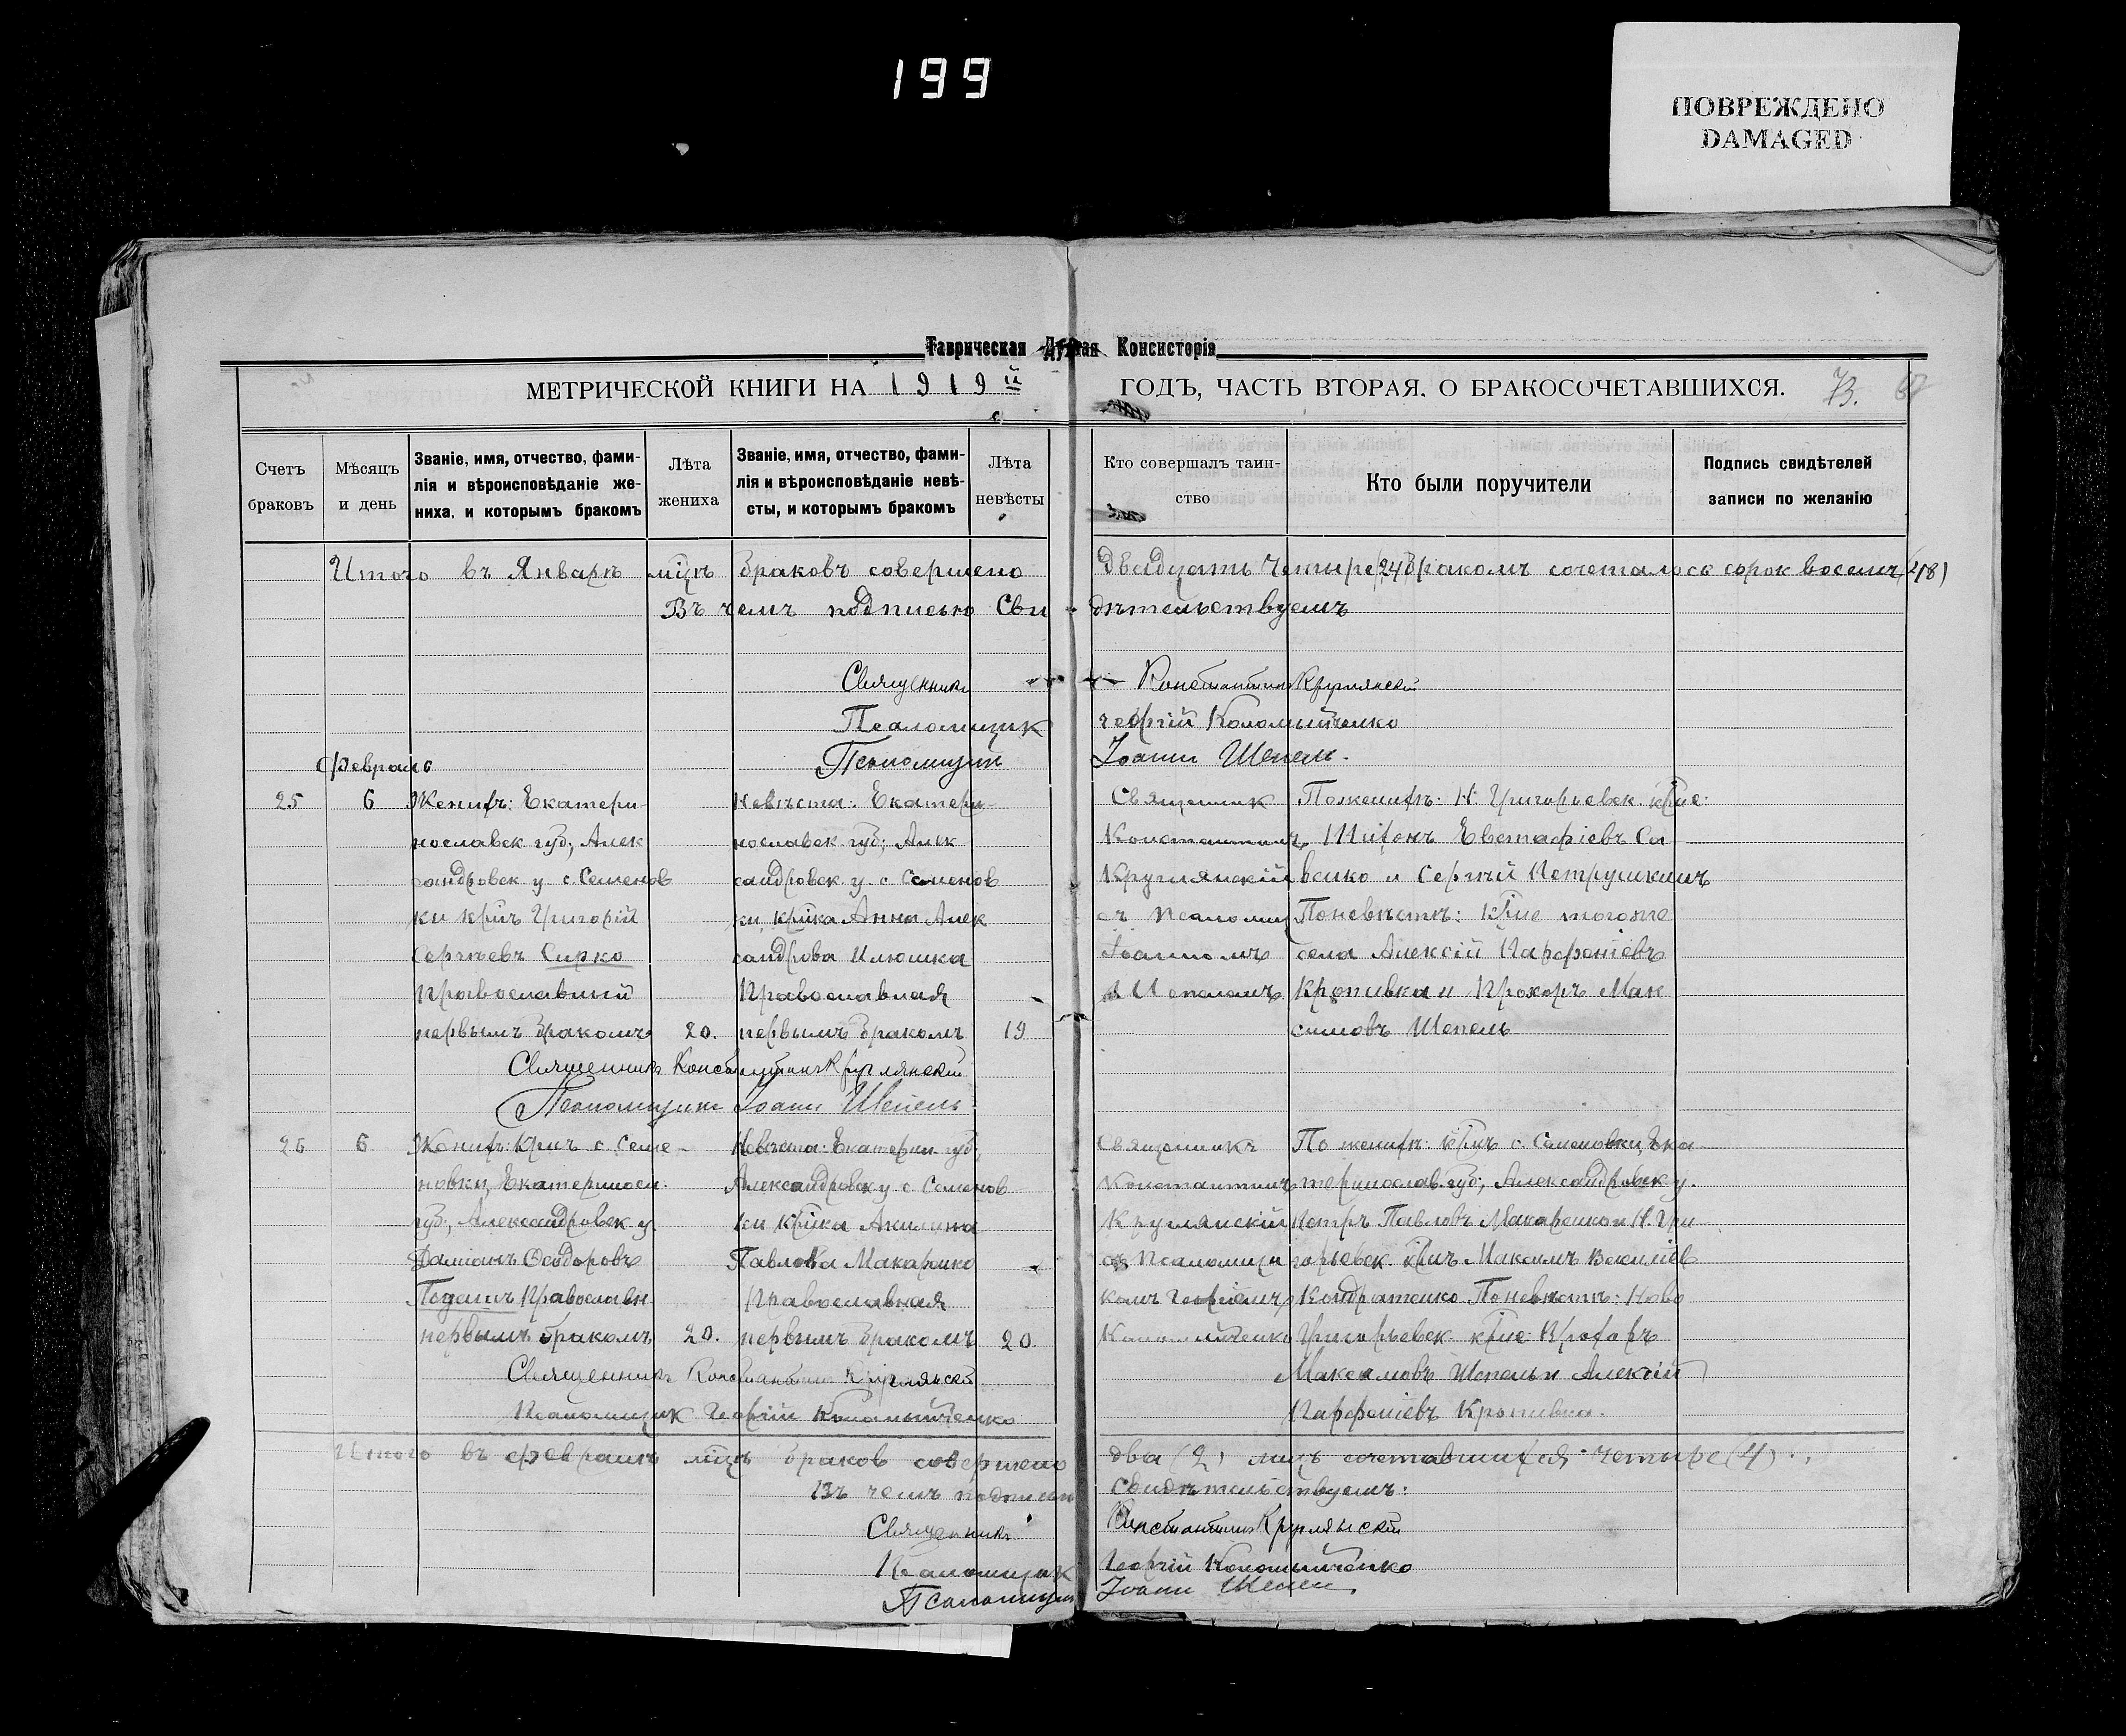 199
ПОВРЕЖДЕНО
DAMAGED
Таврическая Духная Консисторія
МЕТРИЧЕСКОЙ КНИГИ НА 1919й ГОДЪ, ЧАСТЬ ВТОРАЯ, О БРАКОСОЧЕТАВШИХСЯ. 73.
Счетъ
браковъ
Мѣсяцъ
и день
Званіе, имя, отчество, фами-
лія и вѣроисповѣданіе же-
ниха, и которымъ бракомъ
Лѣта
жениха
Званіе, имя, отчество, фами-
лія и вѣроисповѣданіе невѣ-
сты, и которымъ бракомъ
Лѣта
невѣсты
Кто совершалъ таин-
ство
Кто были поручители
Подпись свидѣтелей
записи по желанію
Итого въ Январѣ мцѣ браковъ совершено двадцать четыре (24) бракомъ сочеталось сорок восемъ (48)
Въ чемъ подписью свидѣтельствуемъ
Священникъ Константинъ Круглянскій
Псаломщик Георгій Коломыйченко
Псаломщик Іоанн Шепель.
Февраль
25
6
Женихъ: Екатери-
нославск губ; Алек
сандровск у с. Семенов
ки крнъ Григорій
Сергѣевъ Сирко
Православный
первымъ бракомъ
20.
Невѣста: Екатери-
нославск губ; Алек
сандровск у с Семенов
ки, крнка Анна Алек
сандрова Илюшка
Православная
первымъ бракомъ
19
Священник
Константинъ
Круглянскій
съ псаломщ
Іоанномъ
Шепелемъ
По женихѣ: Н. Григорьевск. крне:
Евстафіевъ Са
венко и Сергѣй Петрушкинъ
По невѣстѣ: крне того же
села Алексій Парфеніевъ
Кропивка и Прохоръ Мак
симовъ Шепель
Священникъ Константинъ Круглянскій
Псаломщикъ Іоанн Шепель.
26
6
Женихъ: крнъ с. Семе-
новки, Екатериносл.
губ; Александровск у
Даміанъ Ѳеодоровъ
Православн
первымъ бракомъ
20.
Невѣста: Екатерин. губ;
Александровск у. с. Семенов
ки крнка Акилина
Павлова Макаренко
Православная
первымъ бракомъ
20.
Священникъ
Константинъ
Круглянскій
съ Псаломщи
комъ Георгіемъ
Коломыйченко
По женихѣ: крнъ с. Семеновки, Ека
теринослав. губ; Александровск у.
Петръ Павловъ Макаренко и Н. Гри
горьевск. крнъ Максимъ Василіев
Кондратенко. По невѣстѣ: Ново
Григорьевск крне Прохоръ
Максимовъ Шепель и Алексій
Парфеніевъ Кропивка.
Священникъ Константинъ Круглянскій
Псаломщик Георгій Коломыйченко
Итого въ февралѣ мцѣ браков совершено два (2) лицъ сочетавшихся четыре (4).
Въ чемъ подписью свидѣтельствуемъ:
Священникъ Константинъ Круглянскій
Псаломщик Георгій Коломыйченко
Псаломщик Іоанн Шепель